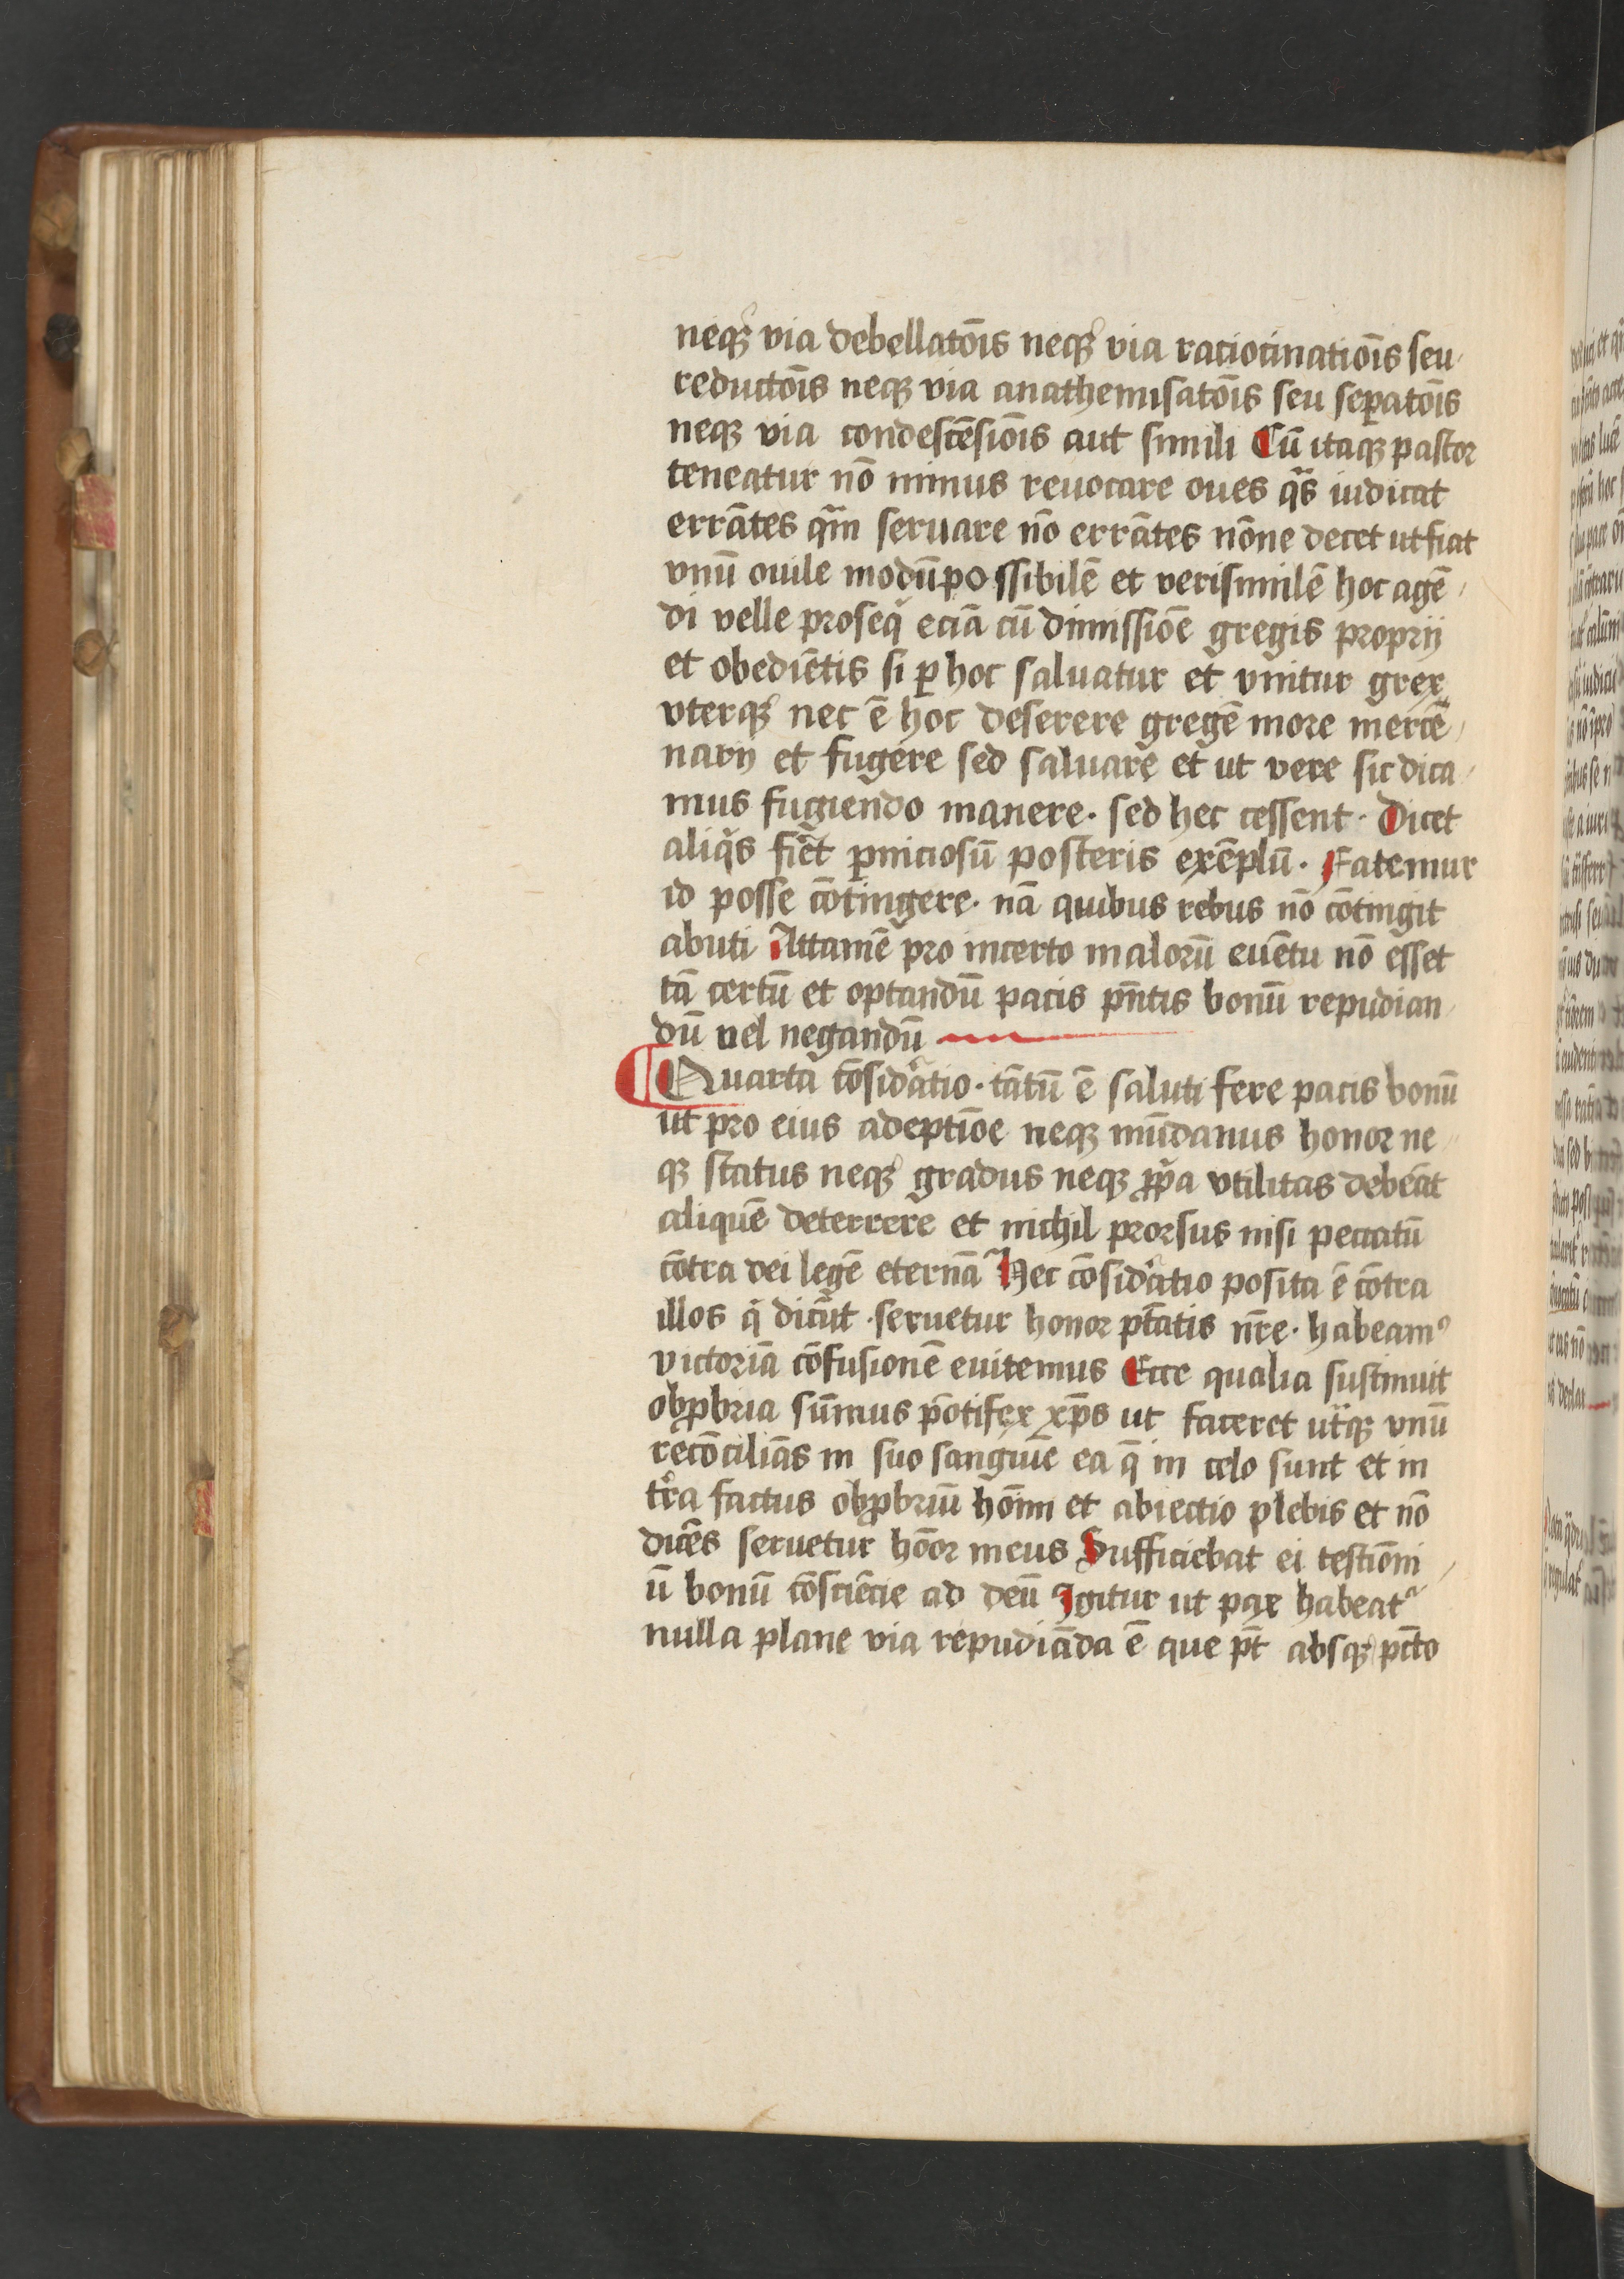 neqꝫ via debellatōis neqꝫ via raciocinatiōis seu
reductōis neqꝫ via anathemisatōis seu seꝑatōis
neqꝫ via condescēsiōis aut simili Cū itaqꝫ pastor
teneatur nō minus reuocare oues qͣs iudicat
errātes qͣm seruare nō errātes nōne decet ut fiat
vnū ouile modū possibilē et verisimilē hoc agē
di velle proseqͥ eciā cū dimissiōe gregis proprij
et obediētis si ꝑ hoc saluatur et vnitur grex
vterqꝫ nec ē hoc deserere gregē more mercē
narij et fugere sed saluare et ut vere sic dica
mus fugiendo manere · sed hec cessent · Dicet
aliqͥs fiet ꝑniciosū posteris exēplū · Fatemur
id posse cōtingere · nā quibus rebus nō cōtingit
abuti Attamē pro incerto malorū euētu nō esset
tā certū et optandū pacis pn̄tis bonū repudian
dū vel negandū
¶ Quarta cōsidͣatio · tātū ē saluti fere pacis bonū
ut pro eius adeptiōe neqꝫ mūdanus honor ne
qꝫ status neqꝫ gradus neqꝫ ꝓpͥa vtilitas debeāt
aliquē deterrere et nichil prorsus nisi peccatū
cōtra dei legē eternā Hec cōsidͣatio posita ē cōtra
illos qͥ dicūt · seruetur honor ptātis nr̄e · habeamꝰ
victoriā cōfusionē euitemus Ecce qualia sustinuit
obꝓbria sūmus pōtifex xp̄s ut faceret utͣqꝫ vnū
recōciliās in suo sanguīe ea q̄ in celo sunt et in
tr̄a factus obꝓbriū hōīm et abiectio plebis et nō
dicēs seruetur hōor meus Sufficiebat ei testiōni
ū bonū cōsciēcie ad deū Igitur ut pax habeatͬ
nulla plane via repudiāda ē que pt̄ absqꝫ pctō